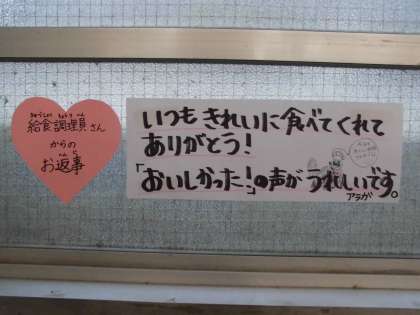 きゅうしょくちょうりいん
給食調理員さん
からの
お返事
いつも きれいに 食べてくれて
ありがとう!
「おいしかった!」の声が うれしいです。
アラガ